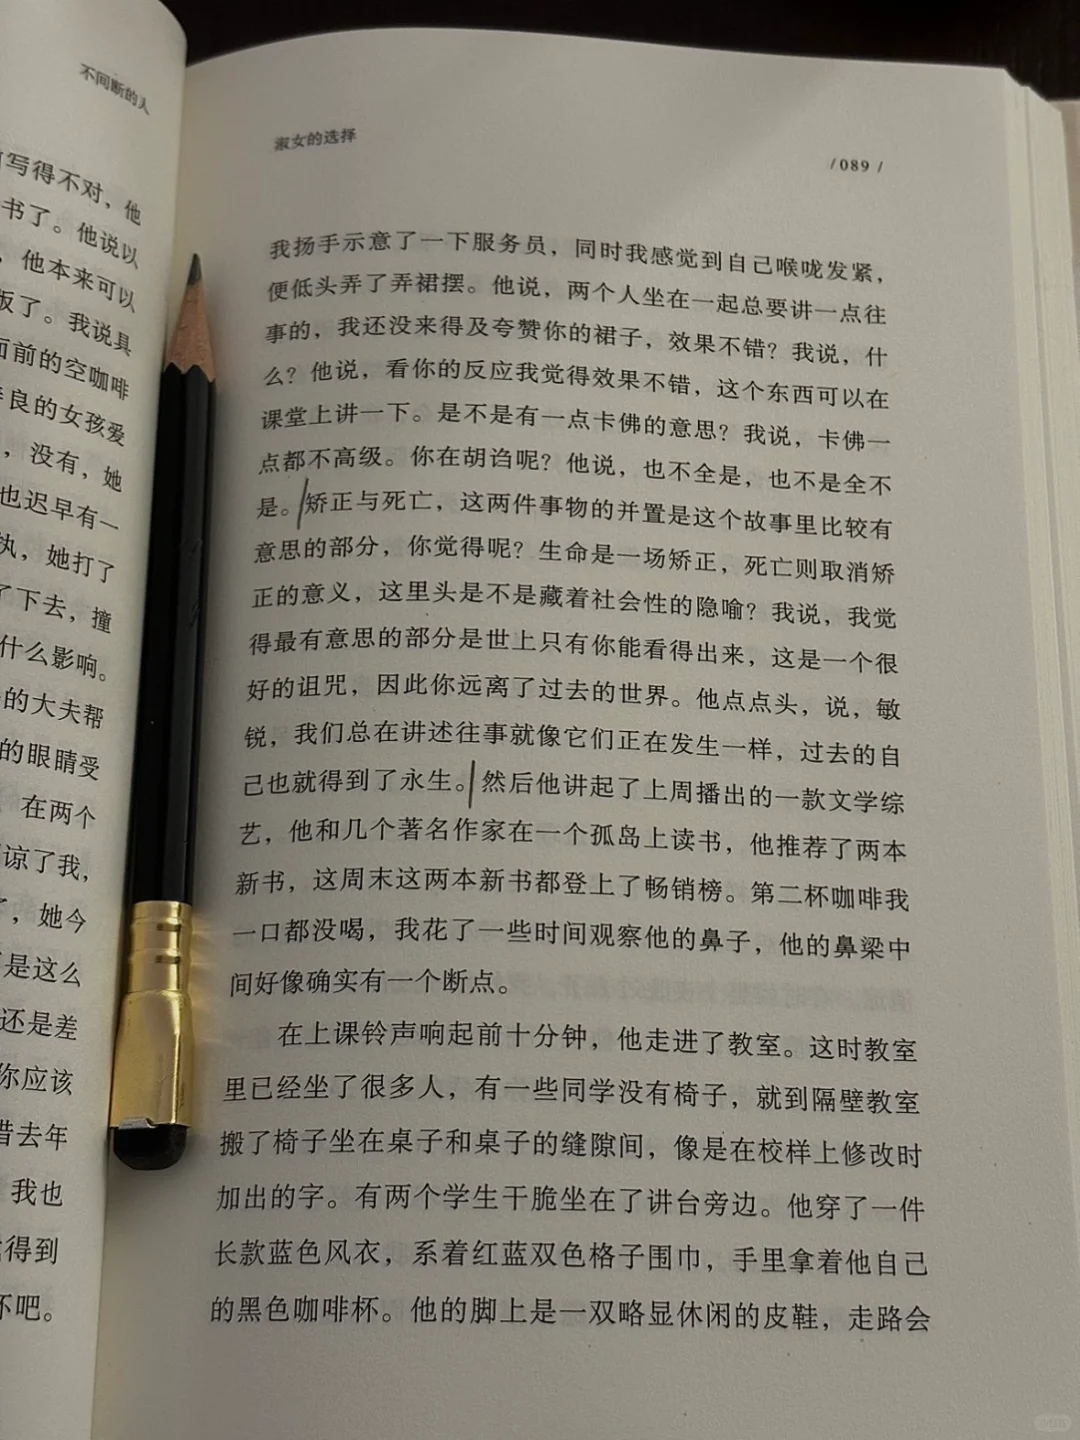 不间断的人
写得不对，他
书了。他说以
，他本来可以
版了。我说具
面前的空咖啡
良的女孩爱
，没有，她
也迟早有一
执，她打了
了下去，撞
什么影响。
的大夫帮
的眼睛受
在两个
谅了我，
，她今
是这么
还是差
你应该
借去年
我也
得到
杯吧。
淑女的选择
/089/
我扬手示意了一下服务员，同时我感觉到自己喉咙发紧，
便低头弄了弄裙摆。他说，两个人坐在一起总要讲一点往
事的，我还没来得及夸赞你的裙子，效果不错？我说，什
么？他说，看你的反应我觉得效果不错，这个东西可以在
课堂上讲一下。是不是有一点卡佛的意思？我说，卡佛一
点都不高级。你在胡诌呢？他说，也不全是，也不是全不
是。矫正与死亡，这两件事物的并置是这个故事里比较有
意思的部分，你觉得呢？生命是一场矫正，死亡则取消矫
正的意义，这里头是不是藏着社会性的隐喻？我说，我觉
得最有意思的部分是世上只有你能看得出来，这是一个很
好的诅咒，因此你远离了过去的世界。他点点头，说，敏
锐，我们总在讲述往事就像它们正在发生一样，过去的自
己也就得到了永生。然后他讲起了上周播出的一款文学综
艺，他和几个著名作家在一个孤岛上读书，他推荐了两本
新书，这周末这两本新书都登上了畅销榜。第二杯咖啡我
一口都没喝，我花了一些时间观察他的鼻子，他的鼻梁中
间好像确实有一个断点。
在上课铃声响起前十分钟，他走进了教室。这时教室
里已经坐了很多人，有一些同学没有椅子，就到隔壁教室
搬了椅子坐在桌子和桌子的缝隙间，像是在校样上修改时
加出的字。有两个学生干脆坐在了讲台旁边。他穿了一件
长款蓝色风衣，系着红蓝双色格子围巾，手里拿着他自己
的黑色咖啡杯。他的脚上是一双略显休闲的皮鞋，走路会